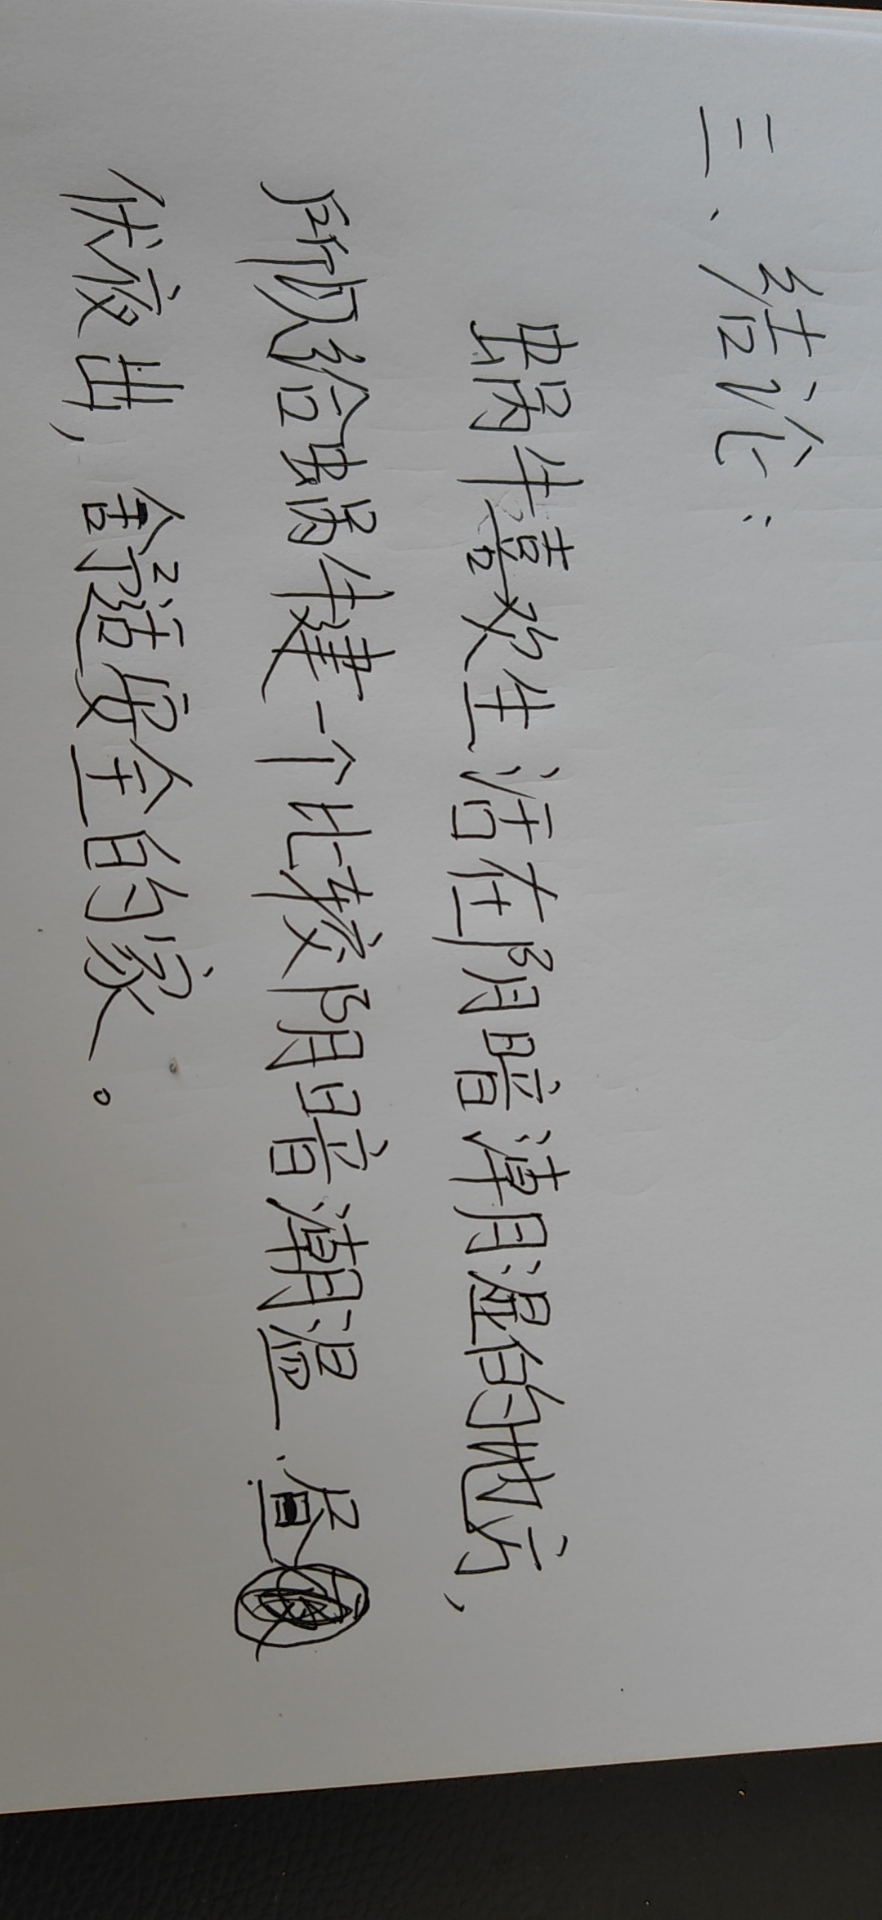 三、结论：
蜗牛喜欢生活在阴暗潮湿的地方，
所以给蜗牛建一个比较阴暗潮温、昼
伏夜出，舒适安全的家。